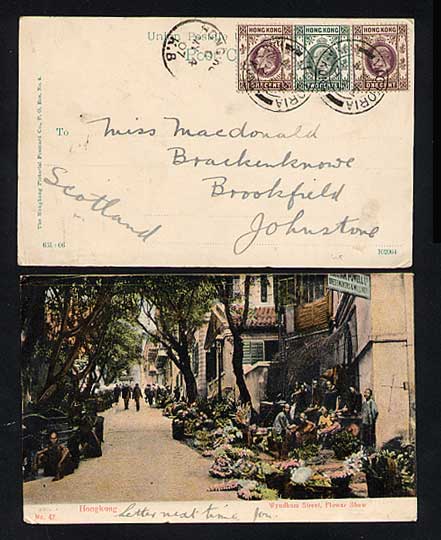 Union Postale
Post C
HONG KONG HONG KONG HONG KONG
ONE CENT TWO CENTS ONE CENT
VICTORIA
07
K.B
The Hongkong Pictorial Postcard Co., P. O. Box No. 4.
To Miss Macdonald
Brackenknowe
Brookfield
Johnstone
Scotland
63L-06
102904
Hongkong
Wyndham Street, Flower Show
No. 47
Letter next time